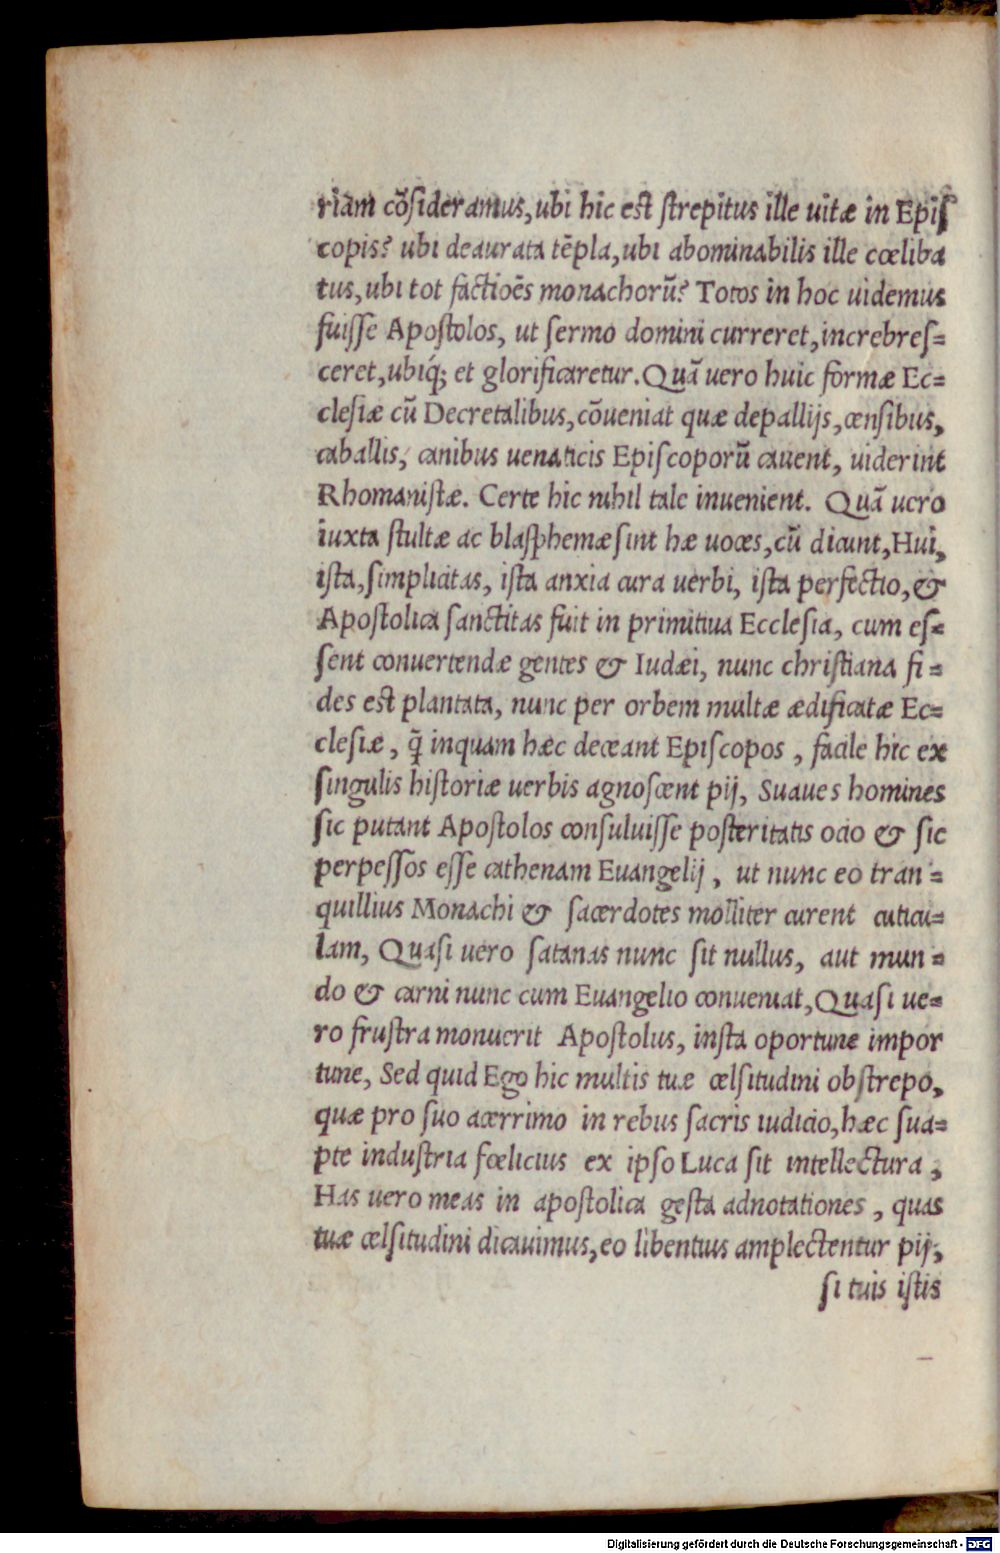 riam cõſideramus,ubi hic eſt ſtrepitus ille uitæ in Epiſ
copis? ubi deaurata tẽpla,ubi abominabilis ille cœliba
tus,ubi tot factiões monachorũ? Totos in hoc uidemus
fuiſſe Apoſtolos, ut ſermo domini curreret,increbreſ=
ceret,ubiq́; et glorificaretur. Quã uero huic formæ Ec=
cleſiæ cũ Decretalibus,cõueniat quæ depallijs,cenſibus,
caballis, canibus uenaticis Epiſcoporũ cauent, uiderint
Rhomaniſtæ. Certe hic nihil tale inuenient. Quã uero
iuxta ſtultæ ac blaſphemæ ſint hæ uoces,cũ dicunt,Hui,
iſta,ſimplicitas, iſta anxia cura uerbi, iſta perfectio,&
Apoſtolica ſanctitas fuit in primitiua Eccleſia, cum eſ=
ſent conuertendæ gentes & Iudæi, nunc chriſtiana fi=
des eſt plantata, nunc per orbem multæ ædificatæ Ec=
cleſiæ, q̃ inquam hæc deceant Epiſcopos, facile hic ex
ſingulis hiſtoriæ uerbis agnoſcent pij, Suaues homines
ſic putant Apoſtolos conſuluiſſe poſteritatis ocio & ſic
perpeſſos eſſe cathenam Euangelij, ut nunc eo tran=
quillius Monachi & ſacerdotes molliter curent cuticu=
lam, Quaſi uero ſatanas nunc ſit nullus, aut mun=
do & carni nunc cum Euangelio conueniat,Quaſi ue=
ro fruſtra monuerit Apoſtolus, inſta oportune impor
tune, Sed quid Ego hic multis tuæ celſitudini obſtrepo,
quæ pro ſuo acerrimo in rebus ſacris iudicio,hæc ſua=
pte induſtria fœlicius ex ipſo Luca ſit intellectura,
Has uero meas in apoſtolica geſta adnotationes, quas
tuæ celſitudini dicauimus,eo libentius amplectentur pij,
ſi tuis iſtis
Digitalisierung gefördert durch die Deutsche Forschungsgemeinschaft - DFG